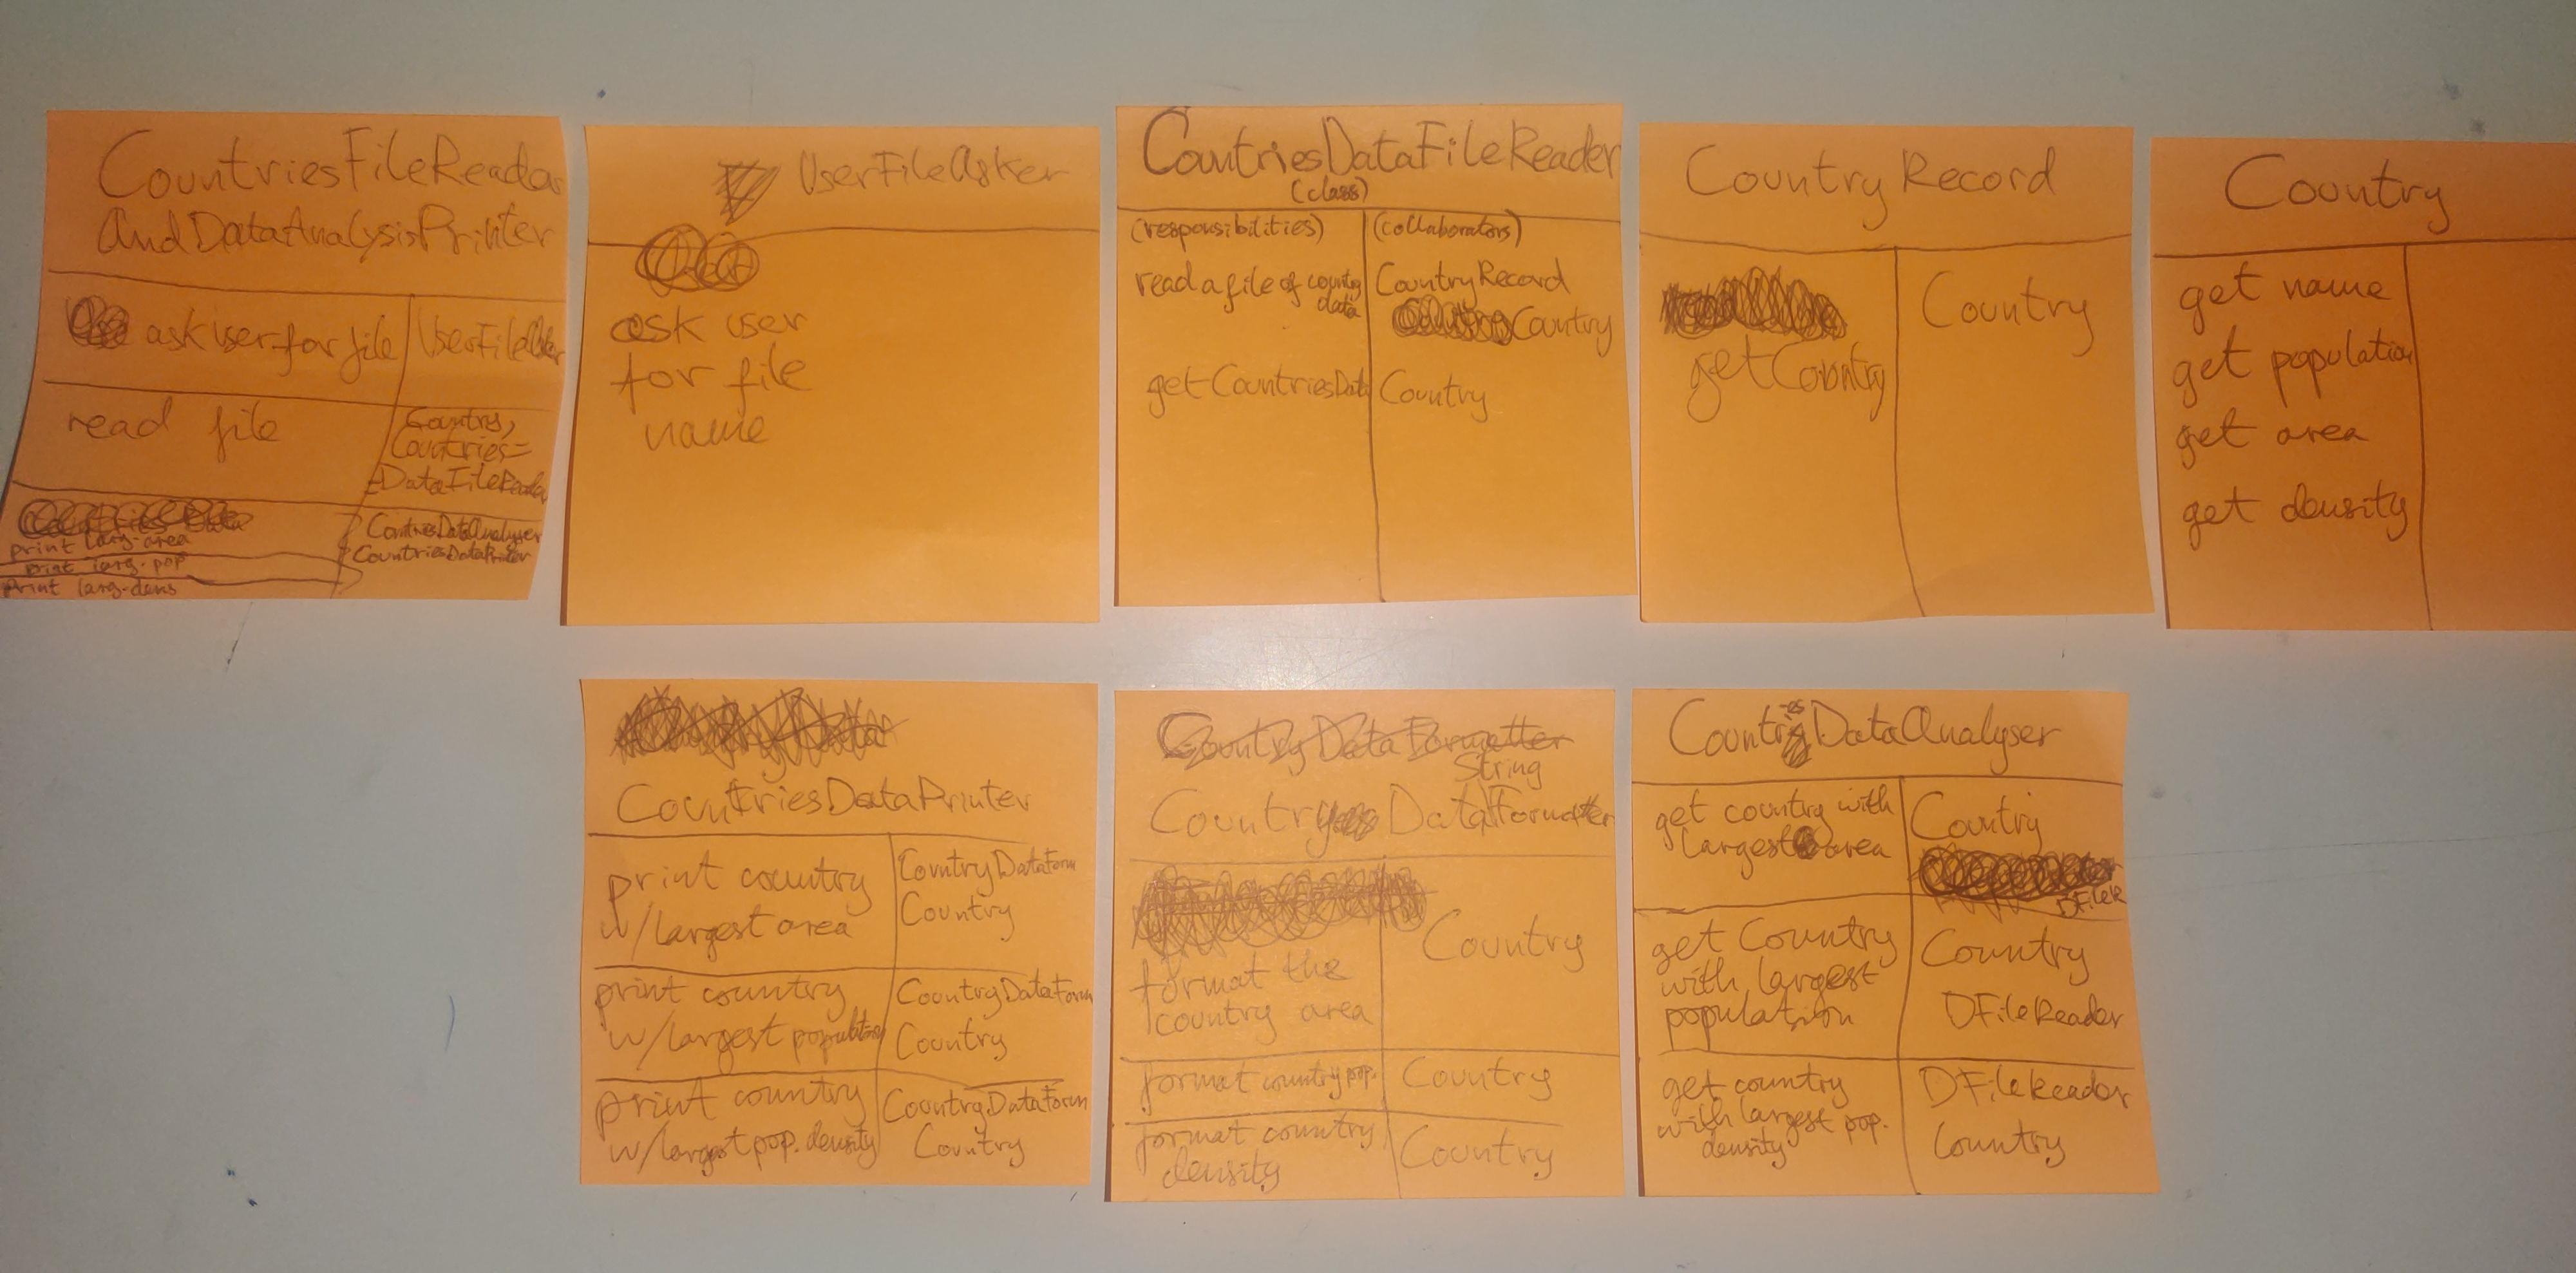 CountriesFileReader
AndDataAnalysisPrinter
ask user for file
UserFileAsker
read file
Country,
Countries=
=DataFileReader
print larg. area
print larg. pop
print larg. dens
CountriesDataAnalyser
CountriesDataPrinter
UserFileAsker
ask user
for file
name
CountriesDataFileReader
(class)
(responsibilities)
(collaborators)
read a file of country
data
CountryRecord
Country
get CountriesData
Country
Country Record
get Country
Country
Country
get name
get population
get area
get density
CountriesDataPrinter
print country
w/largest area
CountryDataForm
Country
print country
w/largest population
CountryDataForm
Country
print country
w/largest pop. density
CountryDataForm
Country
Country Data Formatter
String
Country DataFormatter
format the
country area
Country
format country pop.
Country
format country
density
Country
CountriesDataAnalyser
get country with
largest area
Country
DFileR
get Country
with largest
population
Country
DFileReader
get country
with largest pop.
density
DFileReader
Country